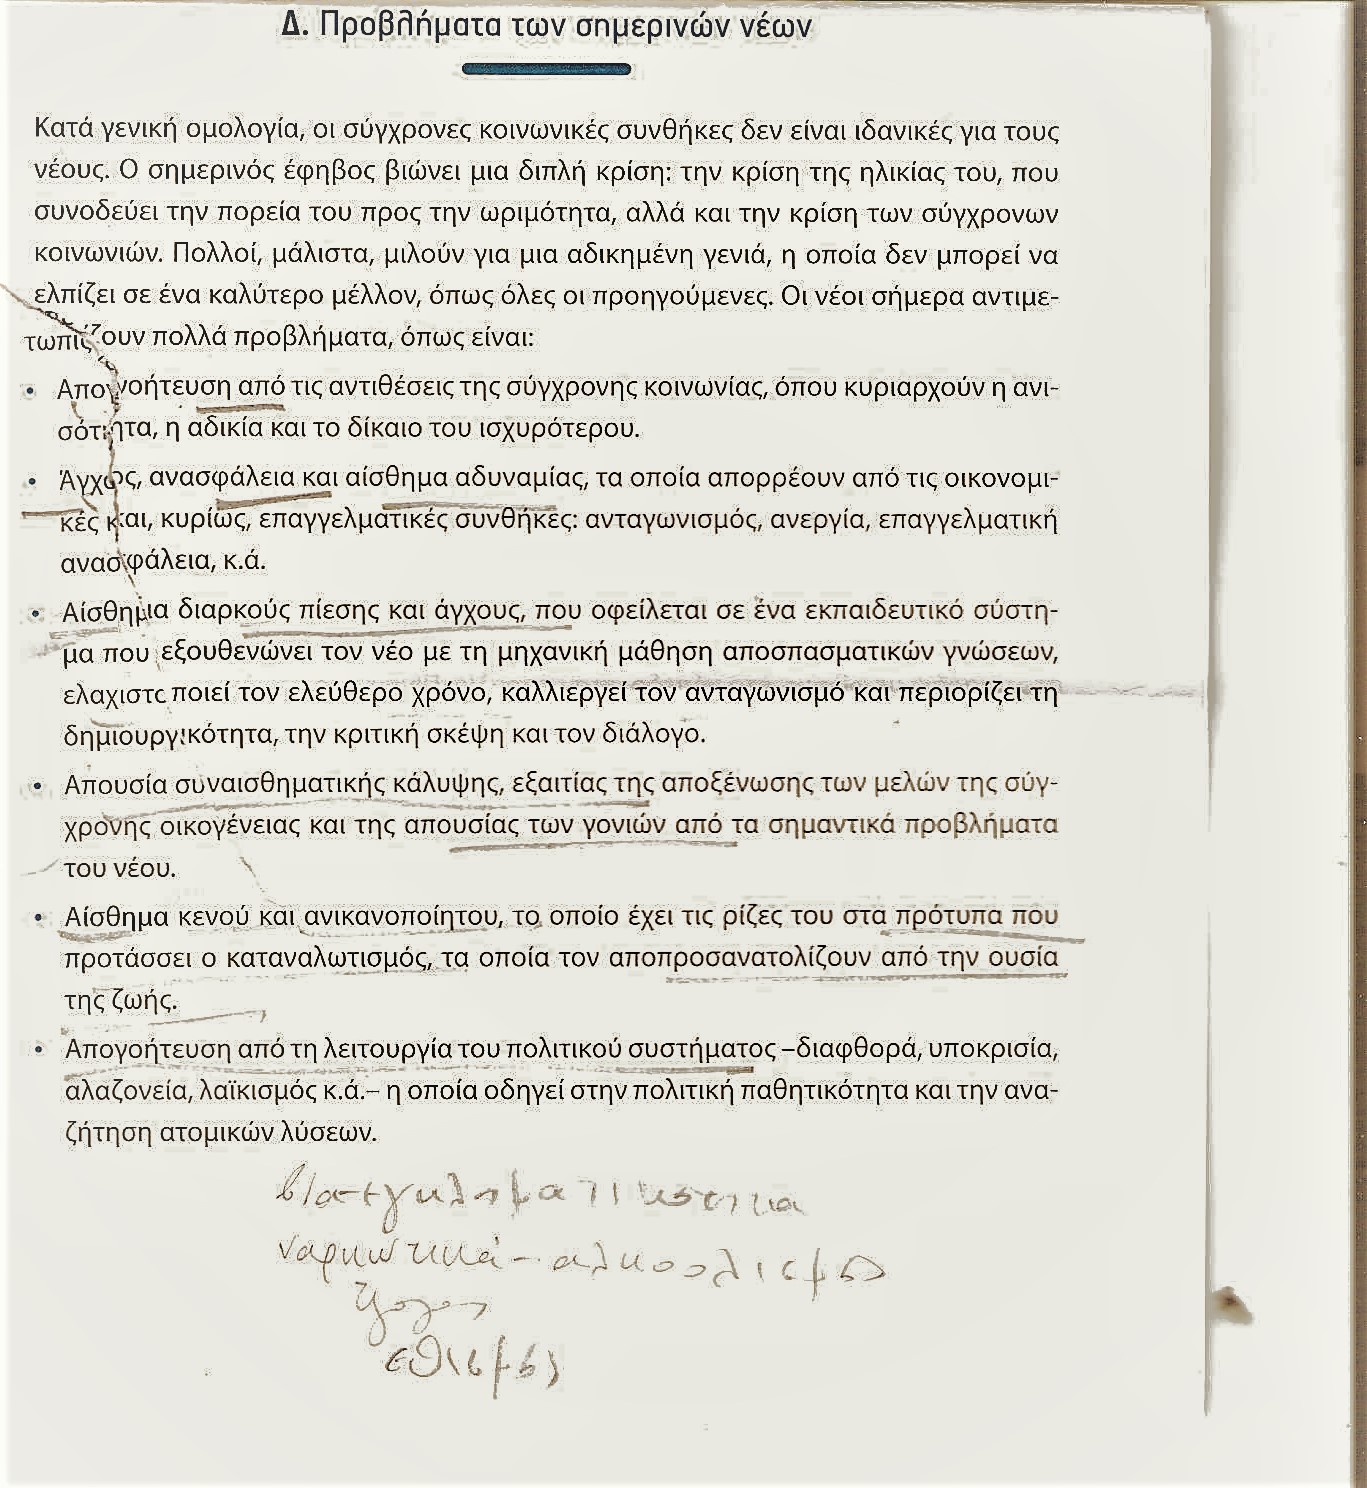 Δ. Προβλήματα των σημερινών νέων
Κατά γενική ομολογία, οι σύγχρονες κοινωνικές συνθήκες δεν είναι ιδανικές για τους
νέους. Ο σημερινός έφηβος βιώνει μια διπλή κρίση: την κρίση της ηλικίας του, που
συνοδεύει την πορεία του προς την ωριμότητα, αλλά και την κρίση των σύγχρονων
κοινωνιών. Πολλοί, μάλιστα, μιλούν για μια αδικημένη γενιά, η οποία δεν μπορεί να
ελπίζει σε ένα καλύτερο μέλλον, όπως όλες οι προηγούμενες. Οι νέοι σήμερα αντιμε-
τωπίζουν πολλά προβλήματα, όπως είναι:
• Απογοήτευση από τις αντιθέσεις της σύγχρονης κοινωνίας, όπου κυριαρχούν η ανι-
σότητα, η αδικία και το δίκαιο του ισχυρότερου.
• Άγχος, ανασφάλεια και αίσθημα αδυναμίας, τα οποία απορρέουν από τις οικονομι-
κές και, κυρίως, επαγγελματικές συνθήκες: ανταγωνισμός, ανεργία, επαγγελματική
ανασφάλεια, κ.ά.
• Αίσθημα διαρκούς πίεσης και άγχους, που οφείλεται σε ένα εκπαιδευτικό σύστη-
μα που εξουθενώνει τον νέο με τη μηχανική μάθηση αποσπασματικών γνώσεων,
ελαχιστοποιεί τον ελεύθερο χρόνο, καλλιεργεί τον ανταγωνισμό και περιορίζει τη
δημιουργικότητα, την κριτική σκέψη και τον διάλογο.
• Απουσία συναισθηματικής κάλυψης, εξαιτίας της αποξένωσης των μελών της σύγ-
χρονης οικογένειας και της απουσίας των γονιών από τα σημαντικά προβλήματα
του νέου.
• Αίσθημα κενού και ανικανοποίητου, το οποίο έχει τις ρίζες του στα πρότυπα που
προτάσσει ο καταναλωτισμός, τα οποία τον αποπροσανατολίζουν από την ουσία
της ζωής.
• Απογοήτευση από τη λειτουργία του πολιτικού συστήματος –διαφθορά, υποκρισία,
αλαζονεία, λαϊκισμός κ.ά.– η οποία οδηγεί στην πολιτική παθητικότητα και την ανα-
ζήτηση ατομικών λύσεων.
βία-εγκληματικότητα
ναρκωτικά - αλκοολισμό
τζογος
εθισμός